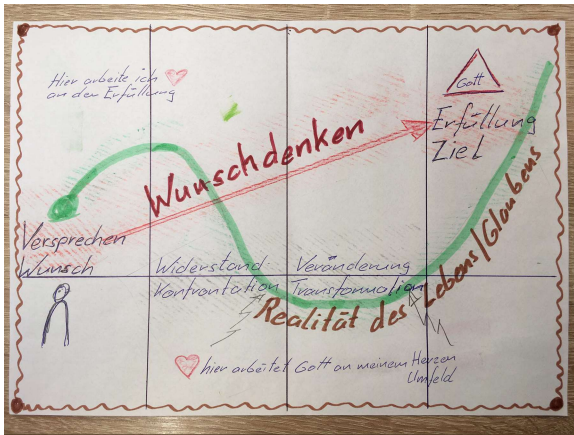 Hier arbeite ich
an der Erfüllung
Gott
Erfüllung
Ziel
Wunschdenken
Versprechen
Wunsch
Widerstand
Konfrontation
Veränderung
Transformation
Realität des Lebens/Glaubens
hier arbeitet Gott an meinem Herzen
Umfeld